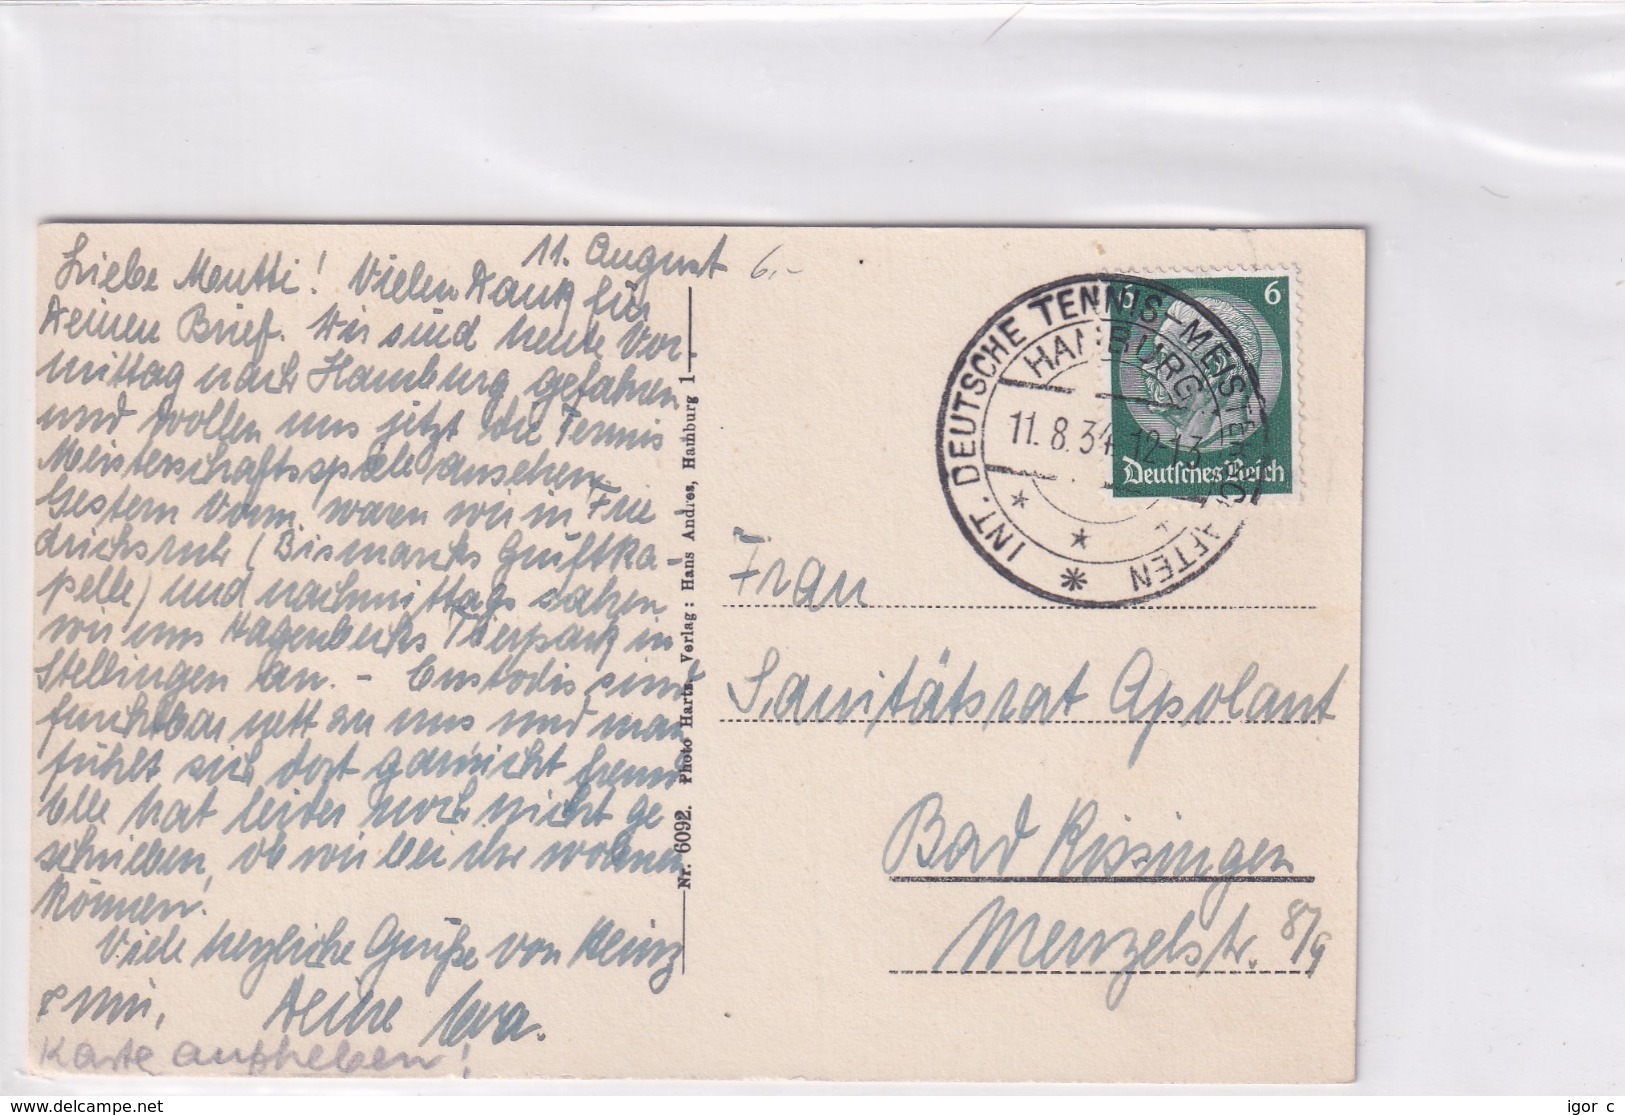 11. August
Liebe Mutti! Vielen Dank für
Deinen Brief. Wir sind heute Vor-
mittag nach Hamburg gefahren
und wollen uns jetzt die Tennis
Meisterschaftsspiele ansehen.
Gestern Vorm. waren wir in Frie
drichsruh (Bismarcks Gruftka-
pelle) und nachmittags sahen
wir uns Hagenbecks Tierpark in
Stellingen an. - Custodis sind
furchtbar nett zu uns und man
fühlt sich dort garnicht fremd
Elle hat leider noch nicht ge
schrieben, ob wir bei ihr wohnen
können.
Viele herzliche Grüße von Heinz
Deine Eva.
Karte aufheben!
6.-
Nr. 6092. Photo Hartz. Verlag: Hans Andres, Hamburg 1
INT. DEUTSCHE TENNIS-MEISTERSCHAFTEN
HAMBURG
11.8.34. 12-13
6 6
Deutsches Reich
Frau
Sanitätsrat Apolant
Bad Kissingen
Menzelstr. 8/9
delcampe.net
igor c